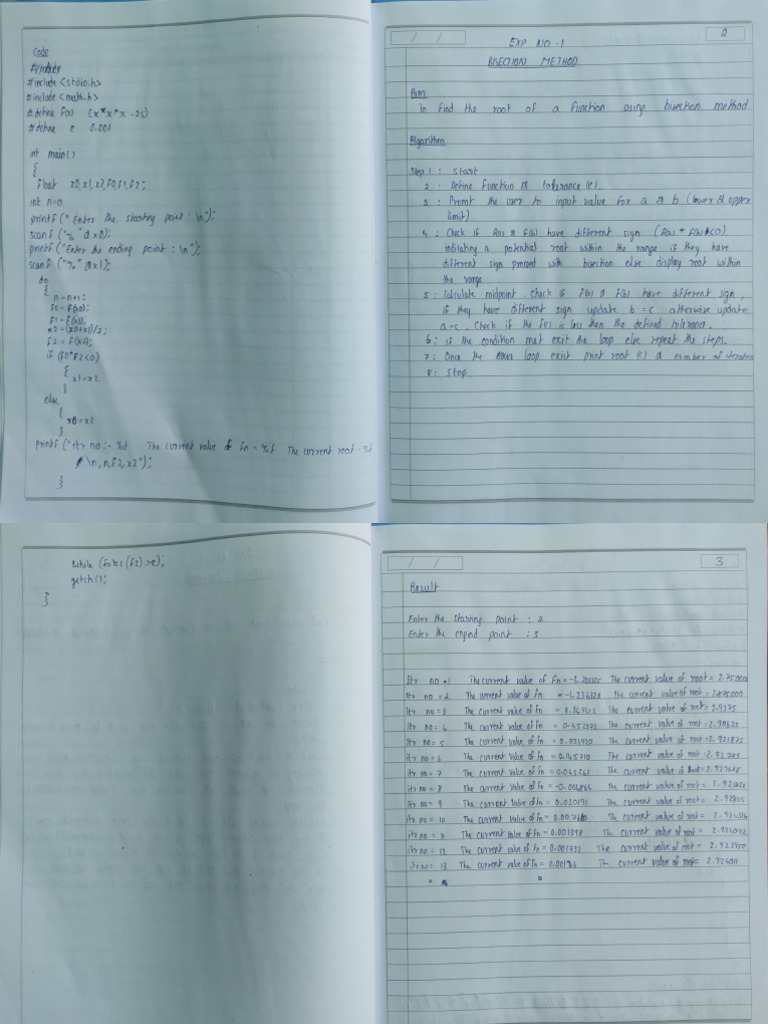 Code
#include <stdio.h>
#include <math.h>
#define f(x) (x*x*x -25)
#define e 0.001
int main()
{
float x0,x1,x2,f0,f1,f2;
int n=0
printf("Enter the starting point : \n");
scanf ("%" &x0);
printf("Enter the ending point : \n");
scanf ("%" &x1);
do
{
n=n+1;
f0=f(x0);
f1=f(x1);
x2=(x0+x1)/2;
f2=f(x2);
if (f0*f2<0)
{
x1=x2
}
else
{
x0=x2
}
printf("itr no:- %d The current value of fn = %f The current root -%f
\n,n,f2,x2");
}
2
EXP NO-1
BISECTION METHOD
Aim
To find the root of a function using bisection method
Algorithm
Step 1 : Start
2 : Define function & tolerance (e).
3 : Promt the user to input value for a & b (lower & upper
limit)
4 : Check if f(a) & f(b) have different sign (f(a) * f(b)<0)
indicating a potential root within the range if they have
different sign proceed with bisection else display root within
the range
5 : Calculate midpoint. Check if f(a) & f(c) have different sign,
if they have different sign update b=c otherwise update
a=c. Check if the f(c) is less than the defined tolerance.
6 : If the condition met exit the loop else repeat the steps.
7 : Once the loop exist print root (c) & number of iteration
8 : Stop.
while (fabs(f2)>e);
getch();
}
3
Result
Enter the starting point : 2
Enter the point : 3
Itr no=1 The current value of Fn= The current value of root= 2.75000
Itr no=2 The current value of Fn The current value of root=
Itr no=3 The current value of Fn The current value of root= 2.9375
Itr no=4 The current value of Fn The current value of root=
Itr no=5 The current value of Fn The current value of root=2.921875
Itr no=6 The current value of Fn The current value of root=
Itr no=7 The current value of Fn The current value of
itr no=8 The current value of Fn The current value of root=
itr no=9 The current value of Fn = 0.020198 The current value of root=
itr no=10 The current value of Fn The current value of root=
itr no= The current value of Fn = 0.001398 The current value of root= 2.924072
itr no=12 The current value of Fn The current value of root=
itr no=13 The current value of Fn The current value of root=